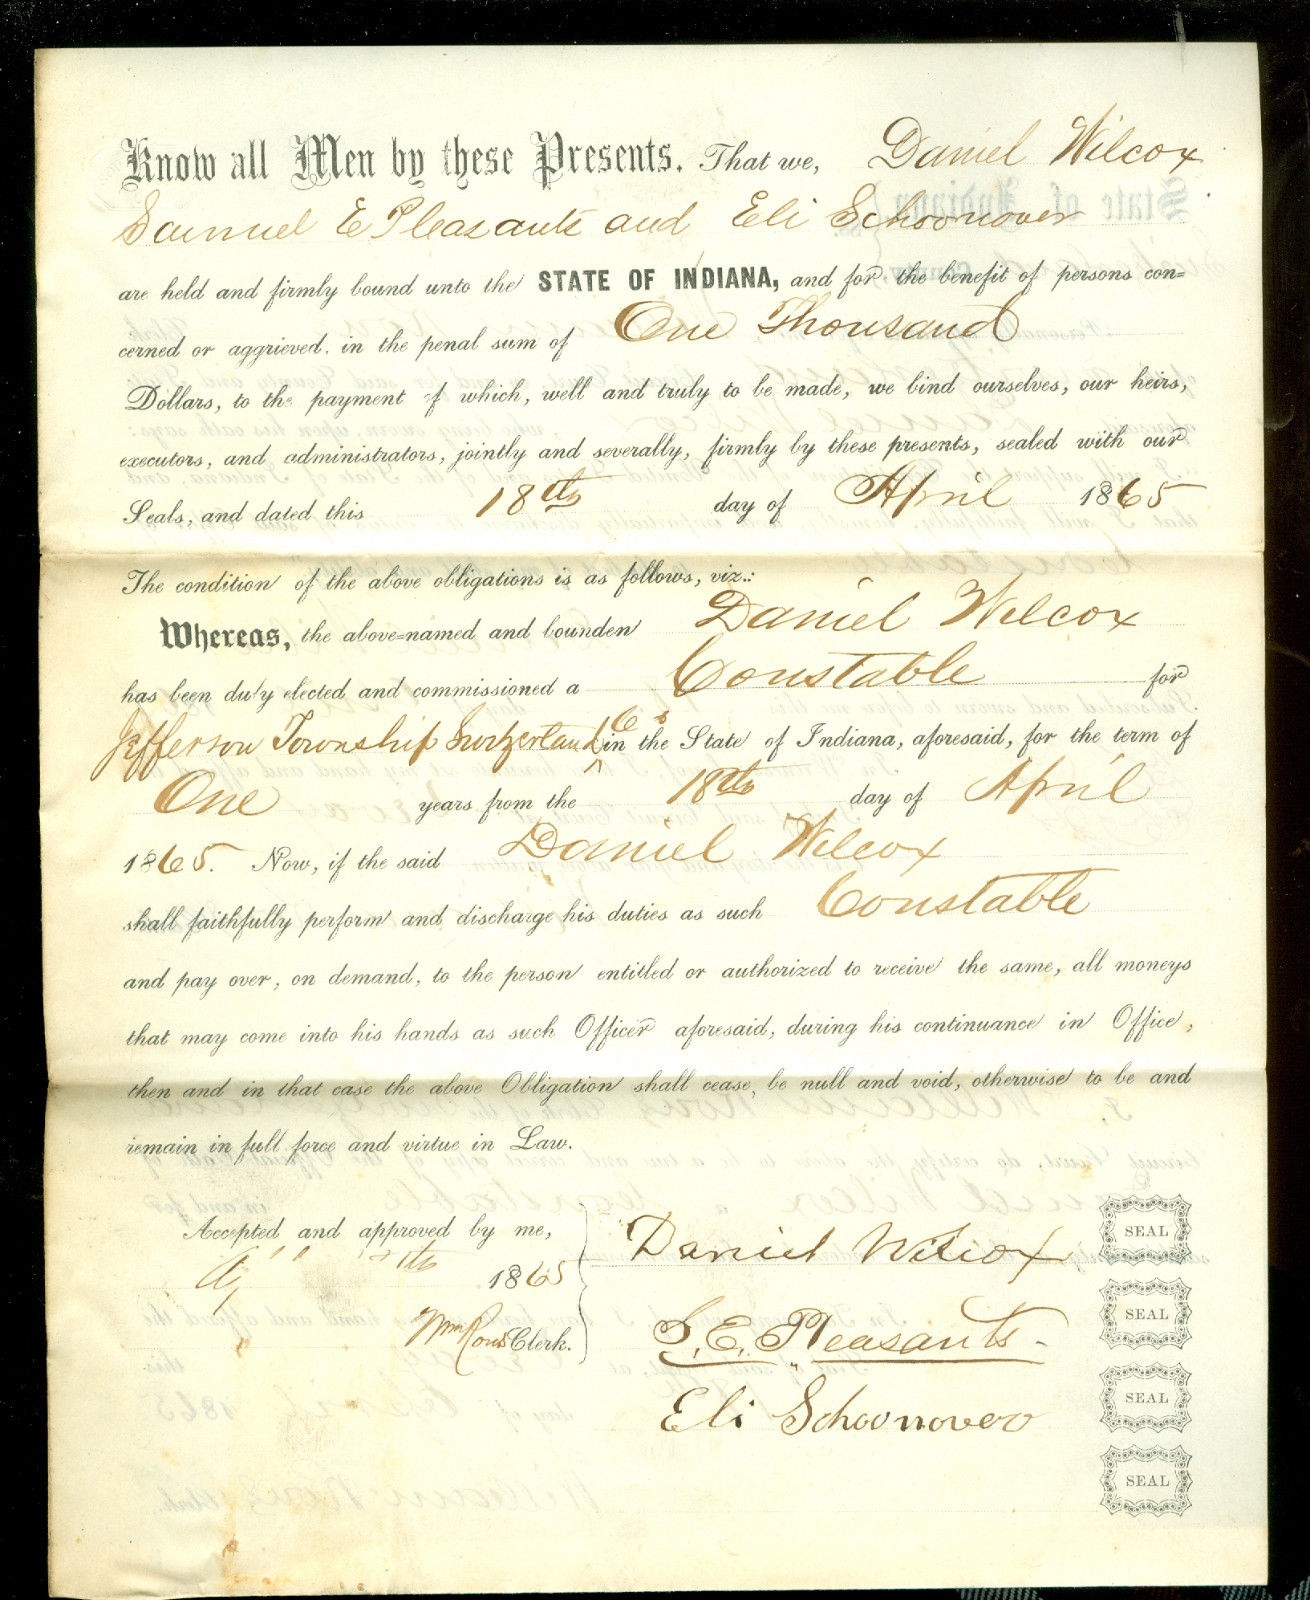 Know all Men by these Presents. That we, Daniel Wilcox
Samuel E Pleasants and Eli Schoonover
are held and firmly bound unto the STATE OF INDIANA, and for the benefit of persons con=
cerned or aggrieved, in the penal sum of One Thousand
Dollars, to the payment of which, well and truly to be made, we bind ourselves, our heirs,
executors, and administrators, jointly and severally, firmly by these presents, sealed with our
Seals, and dated this 18th day of April 1865
The condition of the above obligations is as follows, viz.:
Whereas, the above=named and bounden Daniel Wilcox
has been duly elected and commissioned a Constable for
Jefferson Township Switzerland Co in the State of Indiana, aforesaid, for the term of
One years from the 18th day of April
1865. Now, if the said Daniel Wilcox
shall faithfully perform and discharge his duties as such Constable
and pay over, on demand, to the person entitled or authorized to receive the same, all moneys
that may come into his hands as such Officer aforesaid, during his continuance in Office,
then and in that case the above Obligation shall cease, be null and void, otherwise to be and
remain in full force and virtue in Law.
Accepted and approved by me,
1865
Wm Rous Clerk.
Daniel Wilcox SEAL
S. E. Pleasants SEAL
Eli Schoonover SEAL
SEAL